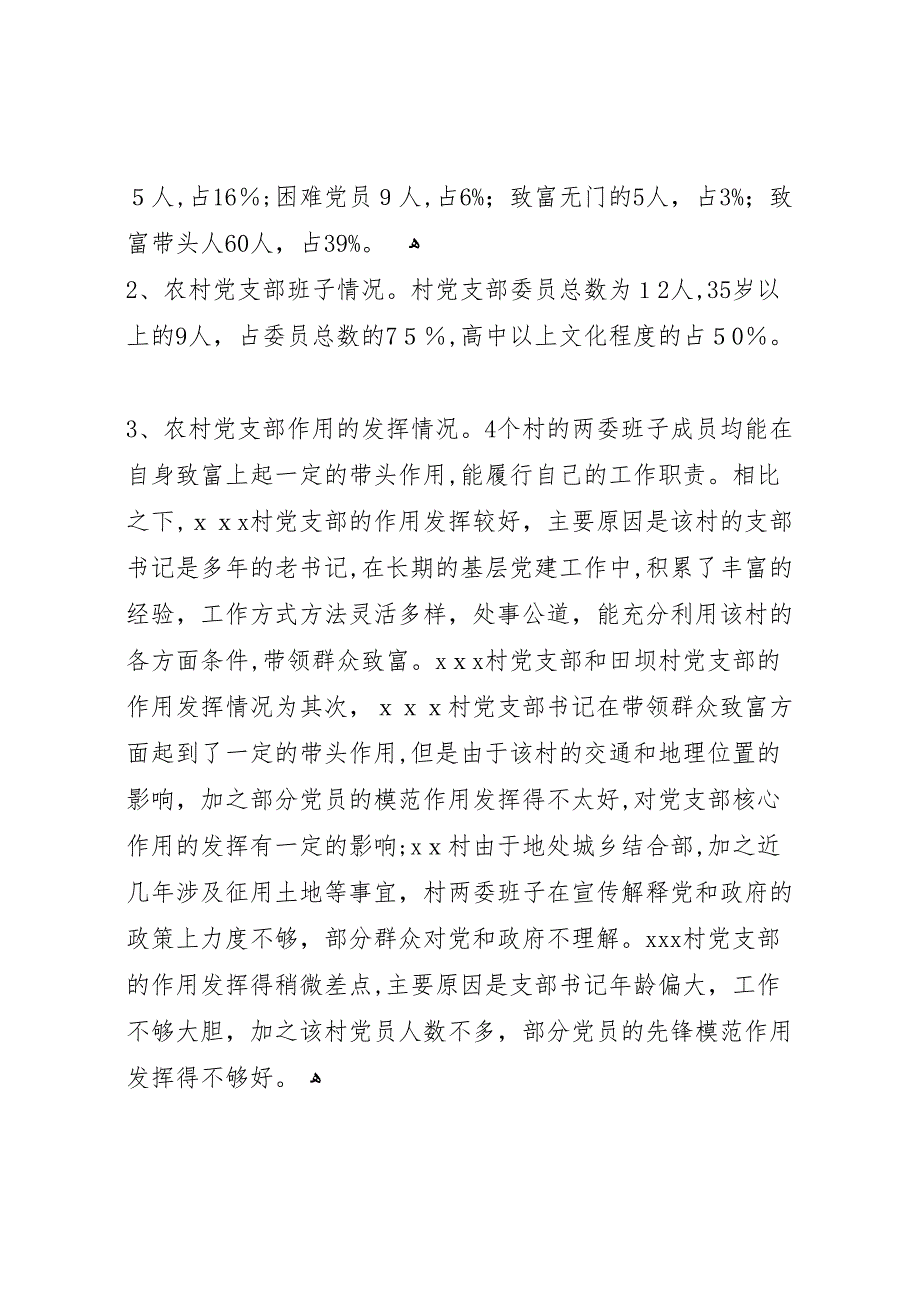 ５人,占16％;困难党员９人,占6%；致富无门的5人，占3%；致
富带头人60人，占39%。 ﻫ
2、农村党支部班子情况。村党支部委员总数为１2人,35岁以
上的9人，占委员总数的7５％,高中以上文化程度的占５0％。
3、农村党支部作用的发挥情况。4个村的两委班子成员均能在
自身致富上起一定的带头作用,能履行自己的工作职责。相比
之下,ｘｘx村党支部的作用发挥较好，主要原因是该村的支部
书记是多年的老书记,在长期的基层党建工作中,积累了丰富的
经验，工作方式方法灵活多样，处事公道，能充分利用该村的
各方面条件,带领群众致富。xｘx村党支部和田坝村党支部的
作用发挥情况为其次，ｘｘｘ村党支部书记在带领群众致富方
面起到了一定的带头作用,但是由于该村的交通和地理位置的
影响，加之部分党员的模范作用发挥得不太好,对党支部核心
作用的发挥有一定的影响;xｘ村由于地处城乡结合部,加之近
几年涉及征用土地等事宜，村两委班子在宣传解释党和政府的
政策上力度不够，部分群众对党和政府不理解。xxx村党支部
的作用发挥得稍微差点,主要原因是支部书记年龄偏大，工作
不够大胆，加之该村党员人数不多，部分党员的先锋模范作用
发挥得不够好。 ﻫ